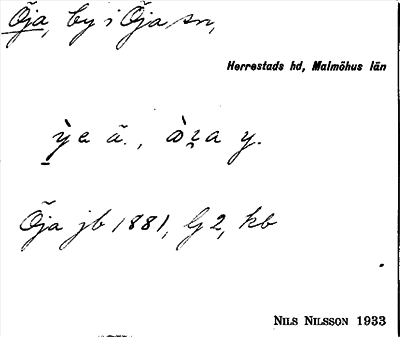 Öja, by i Öja sn,
Herrestads hd, Malmöhus län
ỳ̠e ä., ö̀ʒa y.
Öja jb 1881, G 2, kb
NILS NILSSON 1933